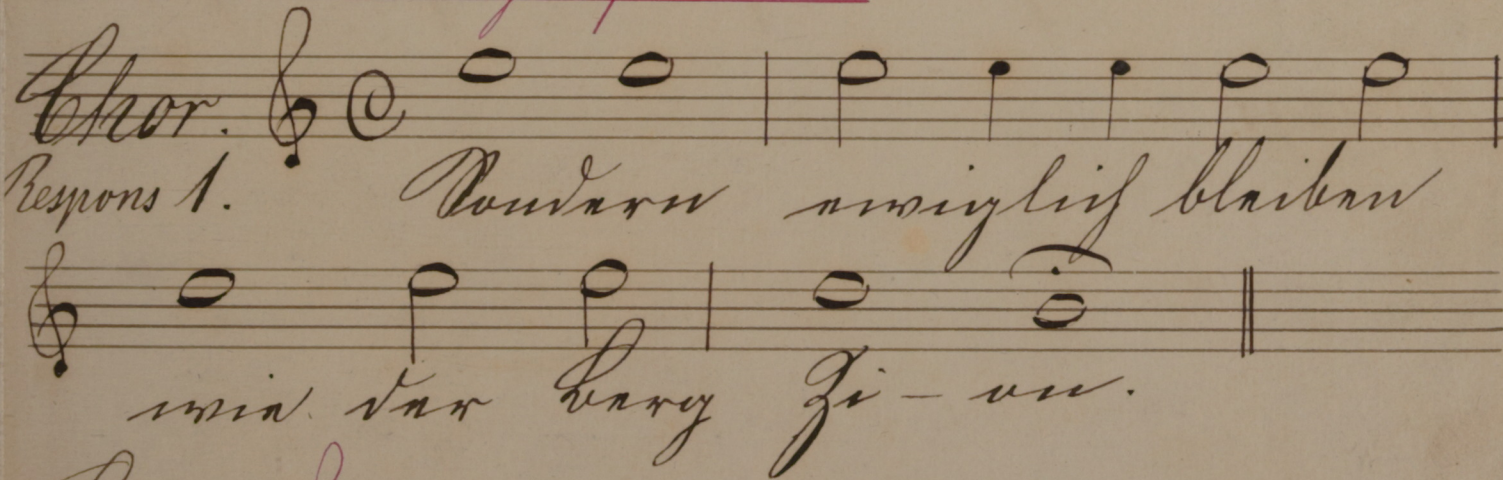 Chor.
Respons 1. Sondern ewiglich bleiben
wie der Berg Zi - on.